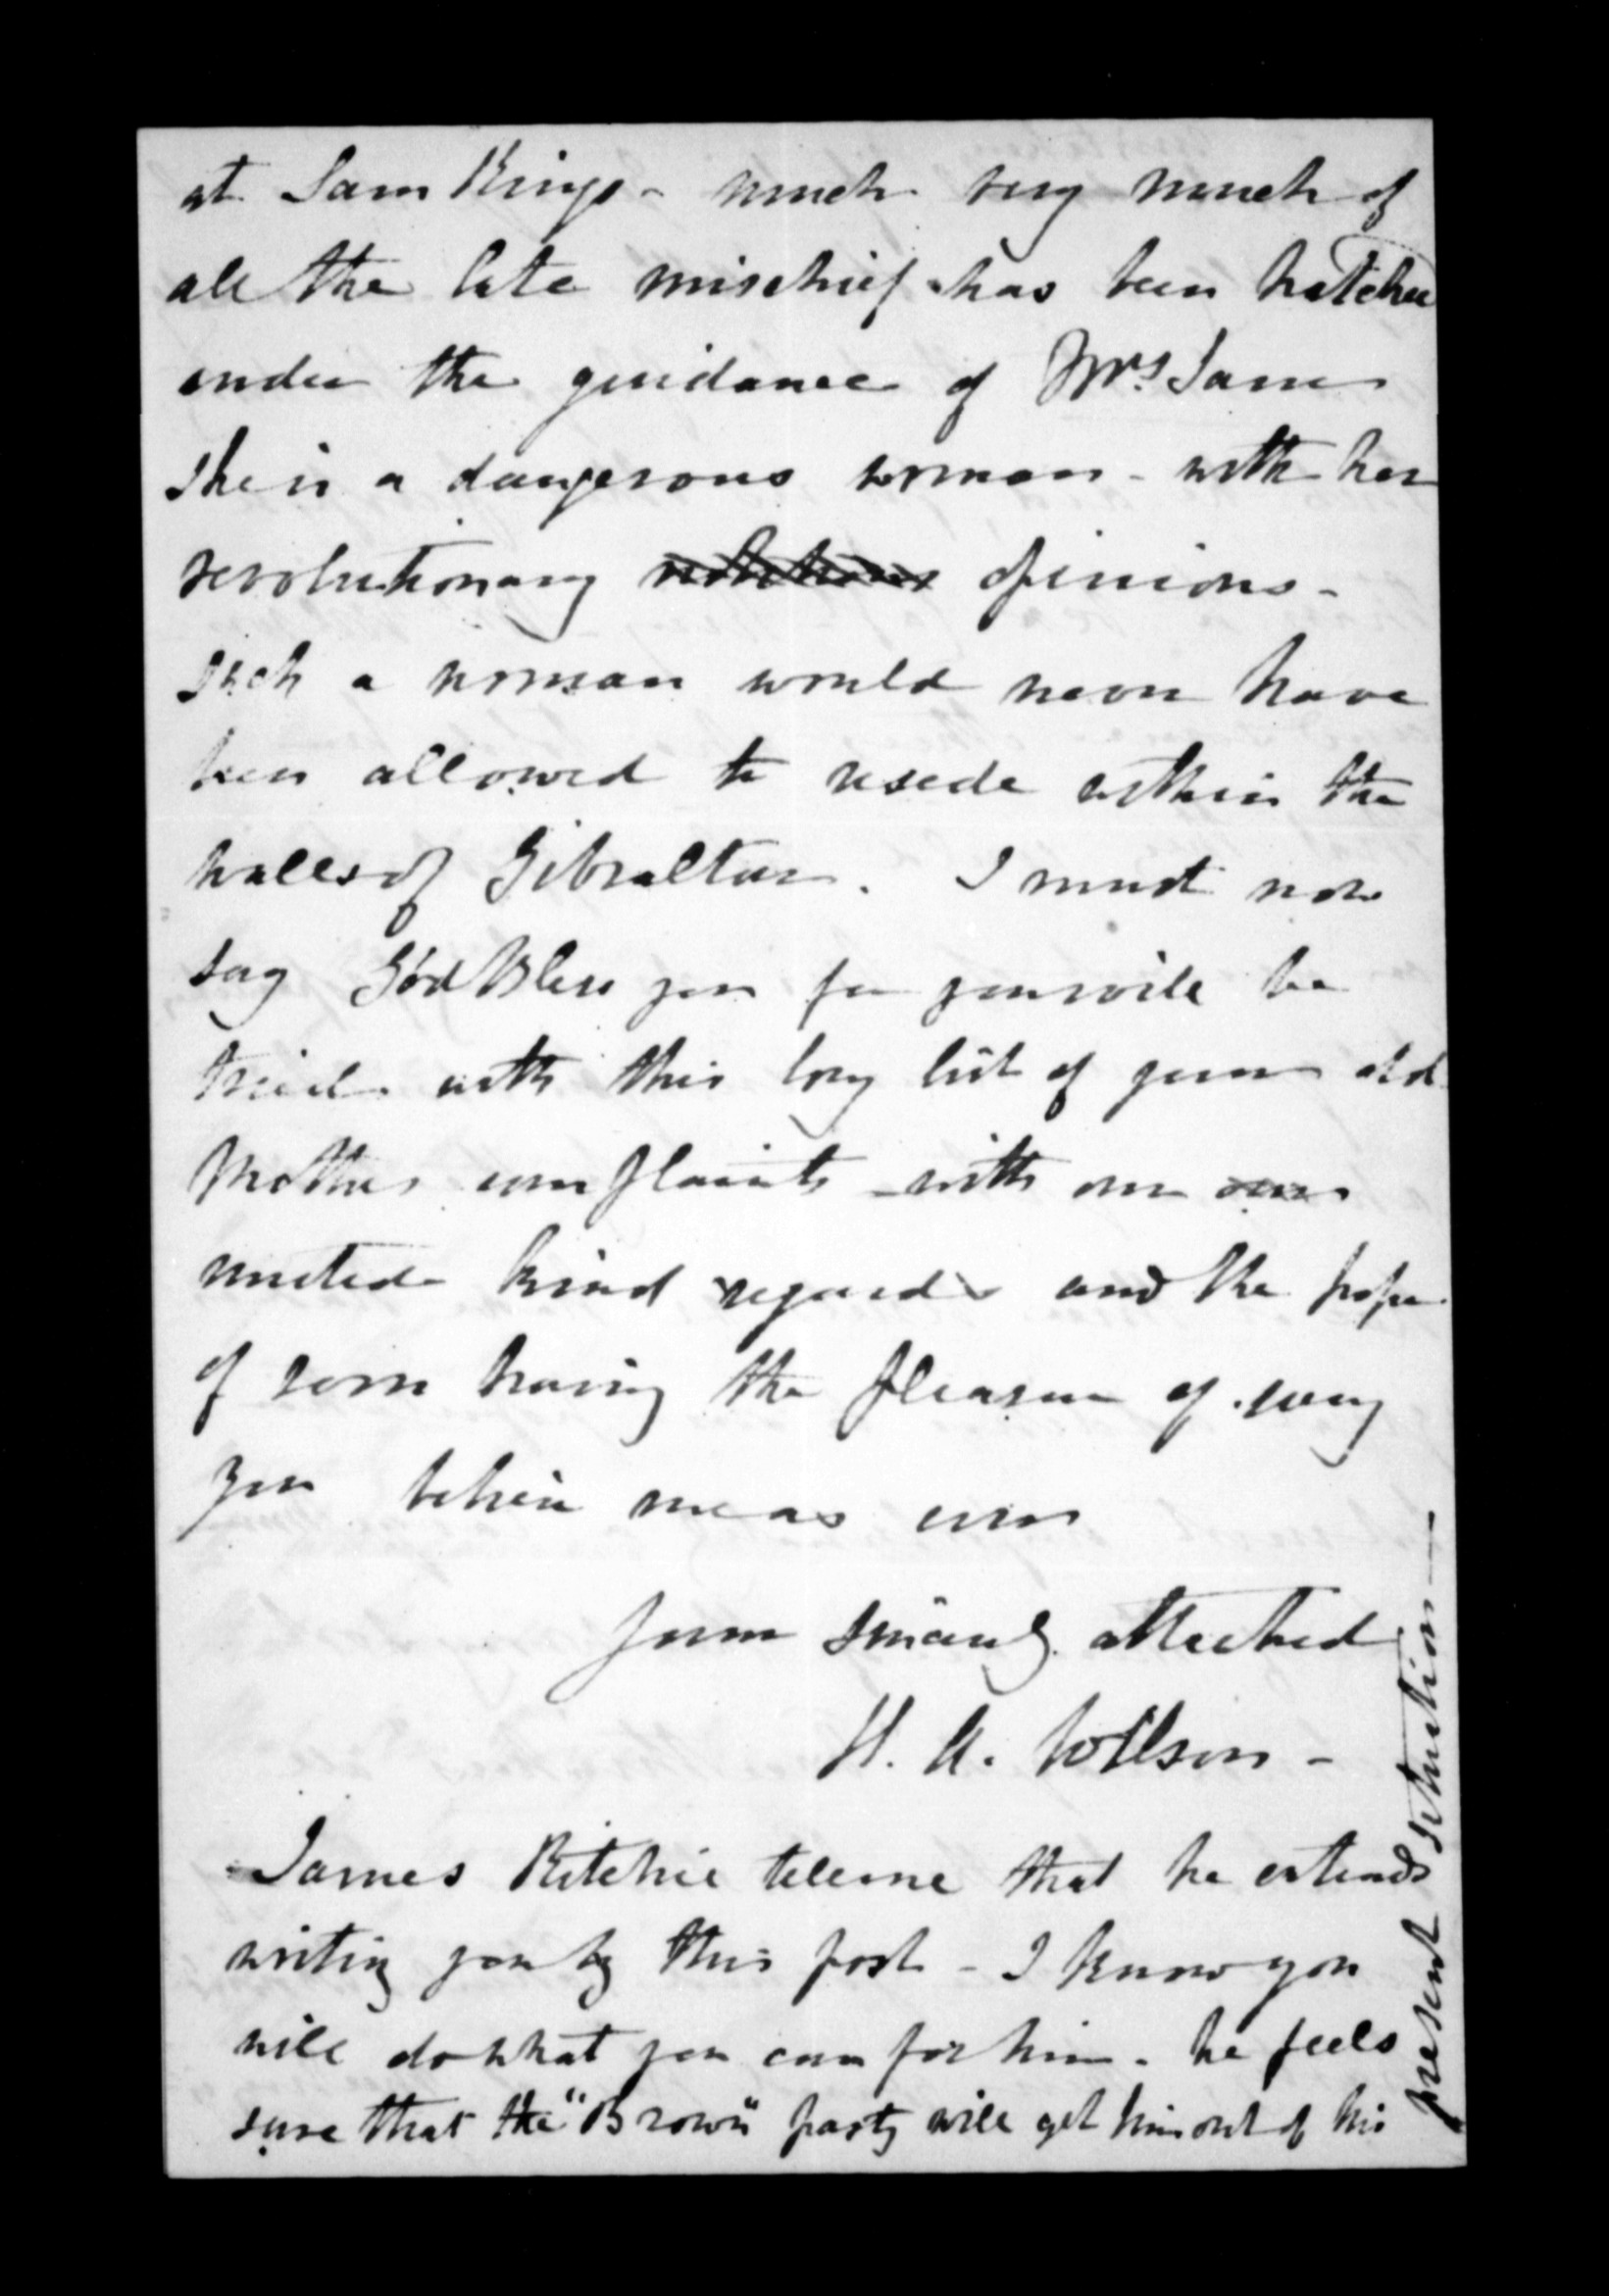 at Sam Kings - much very much of
all the late mischief has been hatched
under the guidance of Mrs. Sam
She is a dangerous woman - with her
revolutionary opinions -
such a woman would never have
been allowed to reside within the
walls of Gibraltar. I must now
say God Bless you for you will be
tried with this long list of your old
Mothers complaints - with our
united kind regards and the hope
of soon having the pleasure of seeing
you believe me as ever
yours sincerely attached
H. A. Wilson -
James Ritchie tells me that he intends
writing you by this post - I know you
will do what you can for him - he feels
sure that the "Brown" party will get him out of his
present situation -